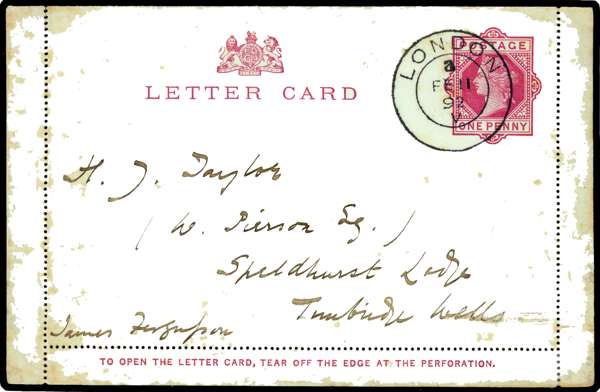 LETTER CARD
LONDON
a
FE 11
92
V
POSTAGE
ONE PENNY
H. J. Taylor
(W. Pierson Esq.)
Speldhurst Lodge
Tunbridge Wells
James Ferguson
TO OPEN THE LETTER CARD, TEAR OFF THE EDGE AT THE PERFORATION.